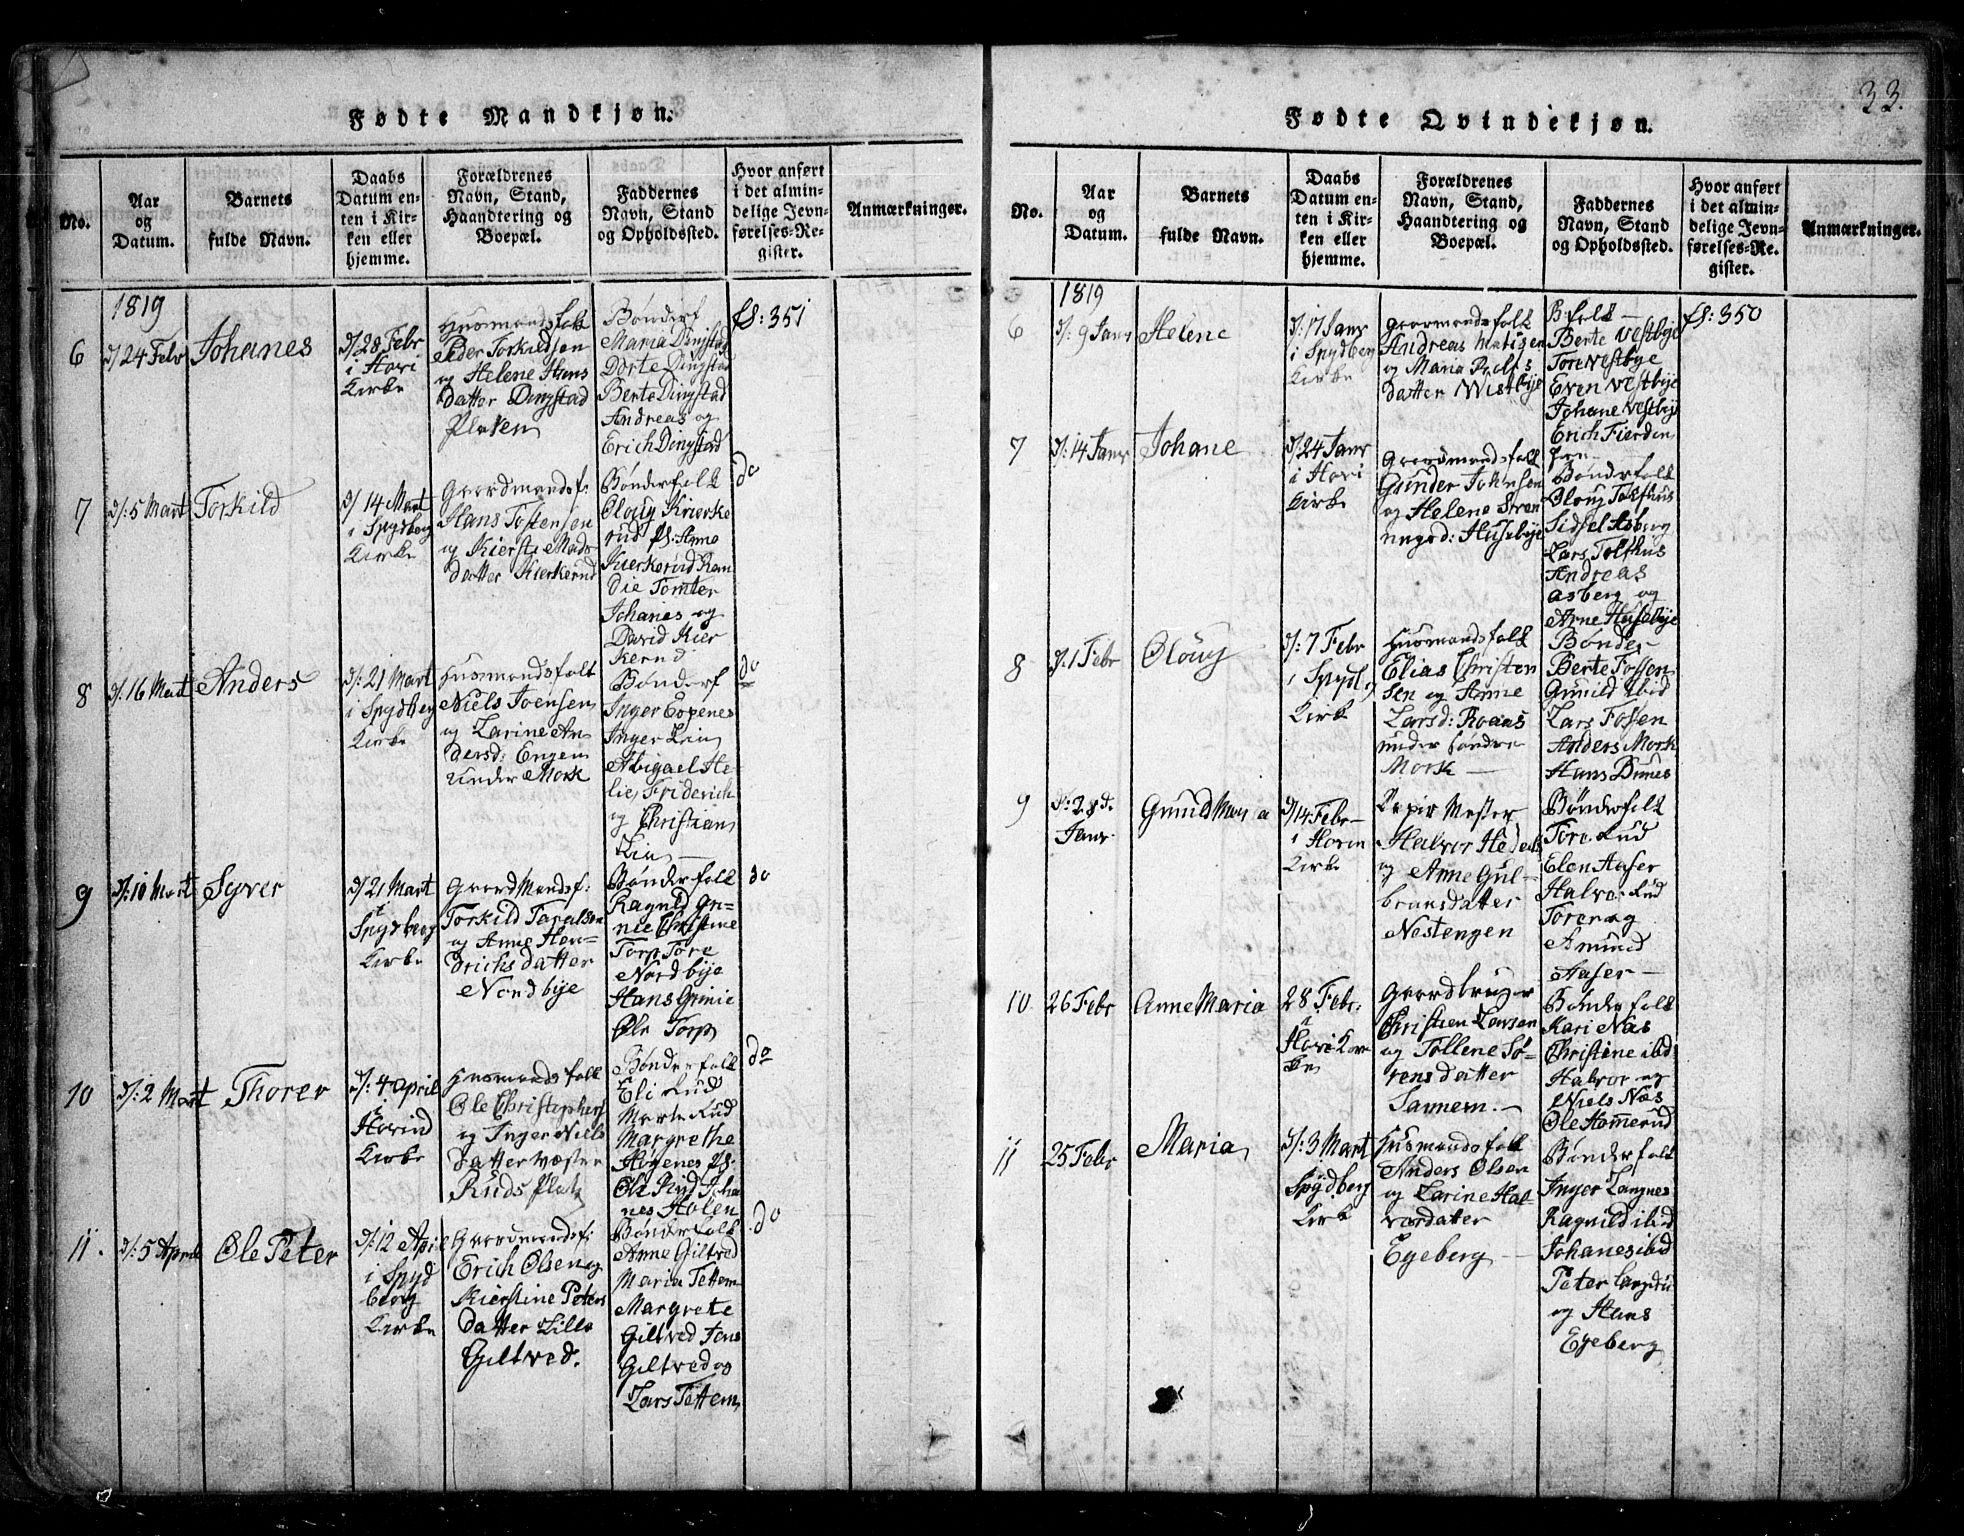 33.
Fødte Mandkjøn.
No.
Aar
og
Datum.
Barnets
fulde Navn.
Daabs
Datum en-
ten i Kir-
ken eller
hjemme.
Forældrenes
Navn, Stand,
Haandtering og
Boepæl.
Faddernes
Navn, Stand
og Opholdssted.
Hvor anført
i det almin-
delige Jevn-
førelses-Re-
gister.
Anmærkninger.
1819
6
d/24 Febr
Johanes
d/28 Febr
i Hovi
Kirke
Huusmandsfolk
Peder Torkildsen
og Helene Hans
datter Dingstad
Pladen
Bønderf
Maria Dingstad
Dorte Dingstad
Berte Dingstad
Andreas og
Erich Dingstad
fl: 351
7
d/: 5 Mart
Torkild
d/ 14 Mart
i Spydberg
Kirke
Gaardmandsf:
Hans Tostensen
og Kierste Mads
datter Kierkerud
Bønderfolk
Oloug Kirierke
rud fl: Anne
Kierkerud Ran
die Tomter
Johanes og
David Kier
kerud
do
8
d/: 16 Mart
Anders
d/: 21 Mart
i Spydberg
Kirke
Husmandsfolk
Niels Joensen
og Larine An
dersd: Engen
under Mork
Bønderf
Inger Copenes
Inger Lin
Abigael He-
lie, Friderich
og Christian
Lin
do
9
d/: 10 Mart
Syver
d/21 Mart
i
Spydberg
Kirke
Gaard Mandsf:
Torkild Taralsen
og Anne Hen-
dricks datter
Nordbye
Bønderfolk
Ragnild Gri-
nie Christine
Torp Tore
Nordbye
Hans Grinie
Ole Torp
do
10
d/: 2 Mart
Thorer
d/: 4 April
i
Hovind
Kirke
Husmandsfolk
Ole Christophers
og Inger Niels
datter Wester
Ruds Plads
Bønderfolk
Eli Rud
Marte Rud
Margrethe
Høgenes
Ole Ryd Joha
nes Holen
do
11.
d/: 5 April
Ole Peter
d/: 12 April
i Spyd
berg
Kirke
Gaardmandsf:
Erich Olsen og
Kierstine Peters
datter Lille
Giltved.
Bønderfolk
Anne Giltved
Maria Tettem
Margrete
Giltved Jens
Giltved og
Lars Tettem
do
Fødte Qvindekjøn.
No.
Aar
og
Datum.
Barnets
fulde Navn.
Daabs
Datum en-
ten i Kir-
ken eller
hjemme.
Forældrenes
Navn, Stand,
Haandtering og
Boepæl.
Faddernes
Navn, Stand
og Opholdssted.
Hvor anført
i det almin-
delige Jevn-
førelses-Re-
gister.
Anmærkninger.
1819
6
d/: 9 Janr
Helene
d/: 17 Janr
i Spydberg
Kirke
Gaardmandsfolk
Andreas Matisen
og Maria
datter Westbye
B: folk
Berte Vestbye
Tore Vestbye
Even Vestbye
Johane Vestbye
Erich Fierden
fl: 350
7
d/: 14 Janr
Johane
d/ 24 Janr
i Hovi
Kirke
Gaardmandsfolk
Gunder Johnsen
og Helene Sven
ningsd: Husebye
Bønderfolk
Oloug Tofthus
Sidsel Asberg
Lars Tofthus
Andreas
asberg og
Arne Husebye
8
d/: 1 Febr
Oloug
d/: 7 Febr
i Spydb
Kirke
Husmandsfolk
Elias Christen
sen og Anne
Larsd: Roaas
under søndre
Mork
Bønder
Berte Fossen
Gunild ibid
Lars Fossen
Anders Mork
Hans Bunes
9
d: 28d.
Janr.
Gunild Maria
d/14 Febr
i Hovin
Kirke
Papir Mester
Halvor Heden
og Anne Gul-
bransdatter
Nestengen
Bønderfolk
Tore Rud
Elen Aaser
Halvor Rud
Toren og
Amund
Aaser
10
26 Febr
Anne Maria
28 Febr.
i
Hovi Kir
ke
Gaardbruger
Christen Larsen
og Tollene Sø-
rensdatter
Sannem.
Bønderfolk
Kari Næs
Christine ibd
Halvor og
Niels Næs
Ole Homerud
11
25 Febr
Maria
d/: 3 Mart
Spydberg
Kirk
Husmandsfolk
Anders Olsen
og Larine Hal-
vordatter
Egeberg
Bønderfolk
Inger Langnes
Ragnild ibid
Johanes ibid
Peter Langnes
og Hans
Egeberg